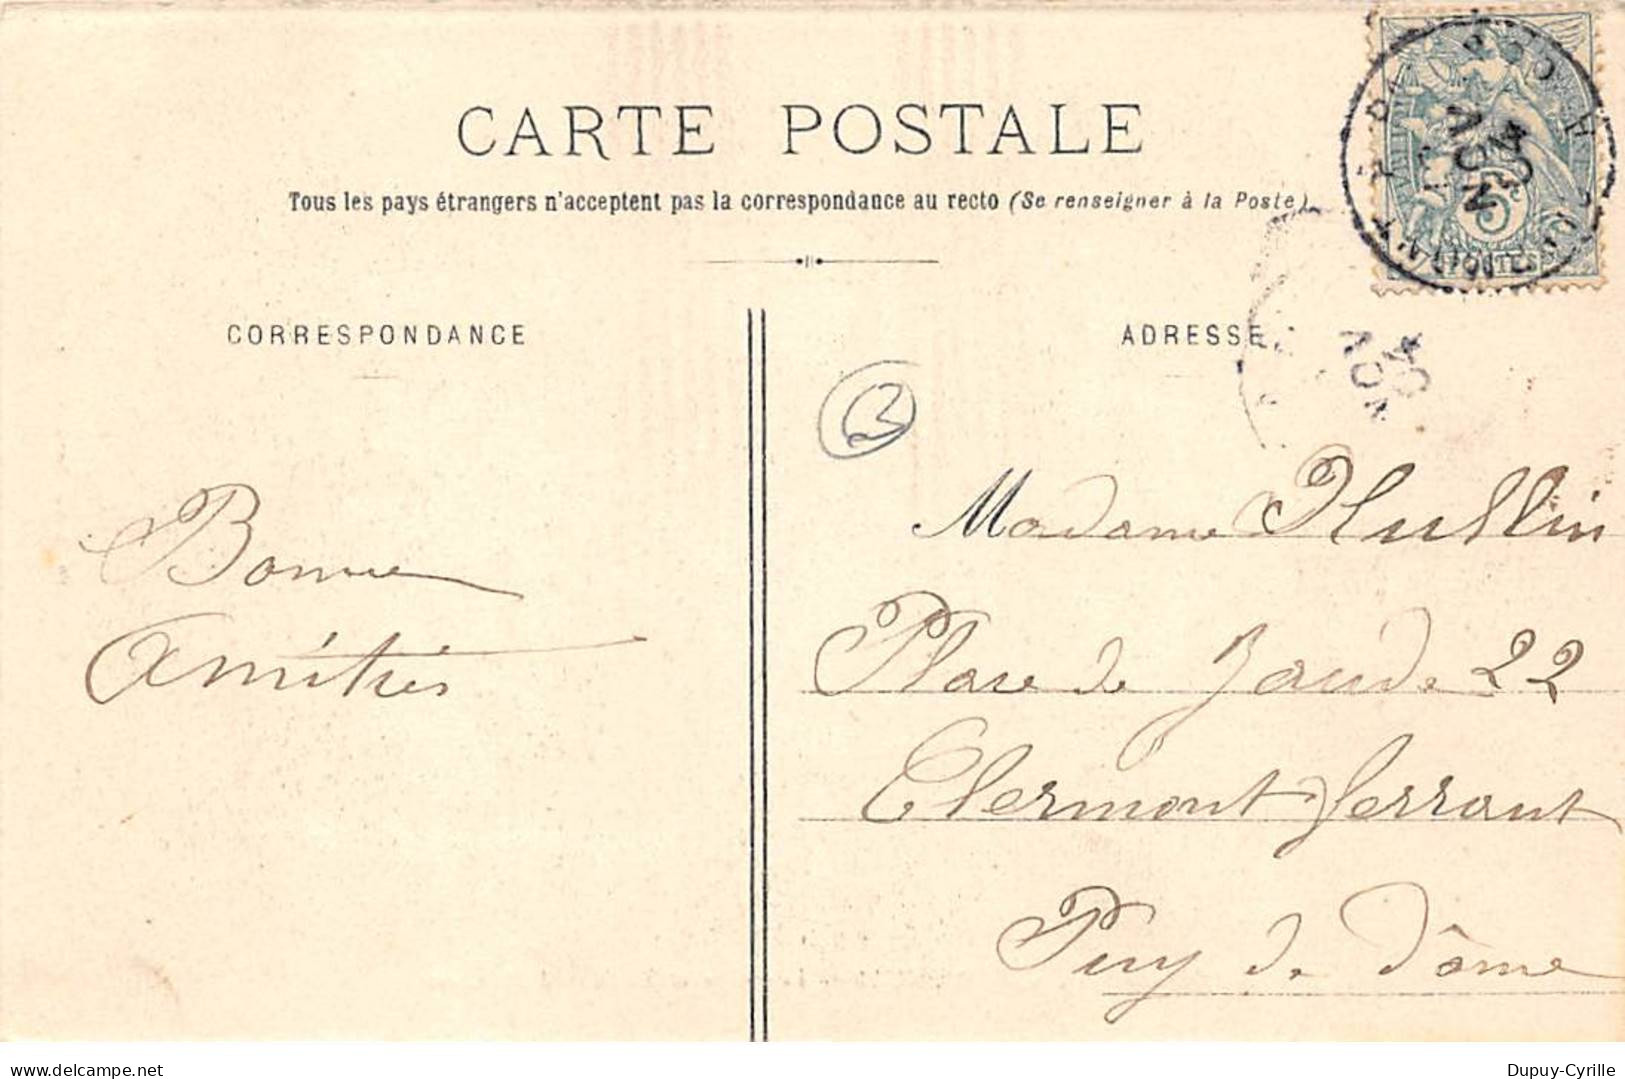 CARTE POSTALE
Tous les pays étrangers n'acceptent pas la correspondance au recto (Se renseigner à la Poste)
CORRESPONDANCE
ADRESSE
NOV
04
5c
POSTES
NOV
04
3
Bonne
Amitiés
Madame
Place de Jaude 22
Clermont ferrant
Puy de Dôme
delcampe.net
Dupuy-Cyrille